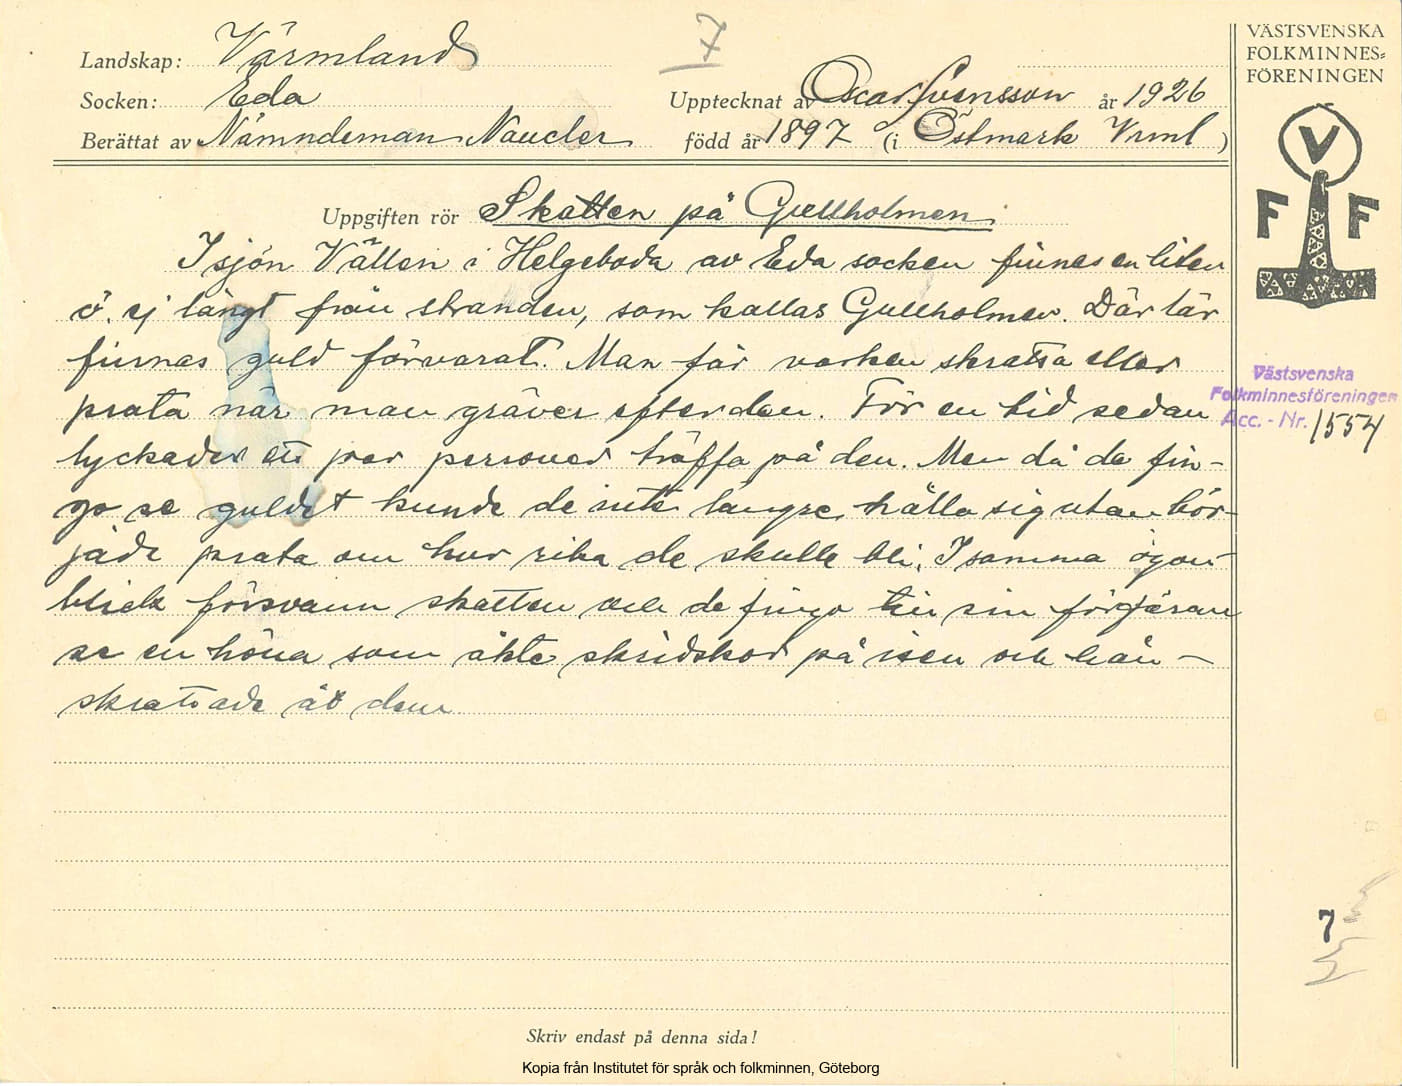 7
VÄSTSVENSKA
FOLKMINNES=
FÖRENINGEN
Landskap: Värmland
Socken: Eda
Upptecknat av Oscar Svensson år 1926
Berättat av Nämndeman Naucler född år 1897 (i Östmark Vrml )
V
F F
Uppgiften rör Skatten på Gullholmen
I sjön Vällen i Helgeboda av Eda socken finnes en liten
ö, ej långt från stranden, som kallas Gullholmen. Där lär
finnas guld förvarat. Man får varken skratta eller
prata när man gräver efter den. För en tid sedan
lyckades ett par personer träffa på den. Men då de fin-
go se guldet kunde de inte längre hålla sig utan bör-
jade prata om hur rika de skulle bli. I samma ögon-
blick försvann skatten och de fingo till sin förfäran
se en höna som åkte skridskor på isen och hån-
skrattade åt dem
Västsvenska
Folkminnesföreningen
Acc. - Nr. 1554
7
Skriv endast på denna sida!
Kopia från Institutet för språk och folkminnen, Göteborg